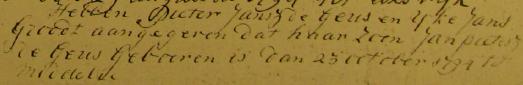 Hebben Pieter Jansz de Geus en Yke Jans
Groot aangegeven dat haar Zoon Jan pietersz
de Geus Gebooren is dan 23 october 1794 to
middelie